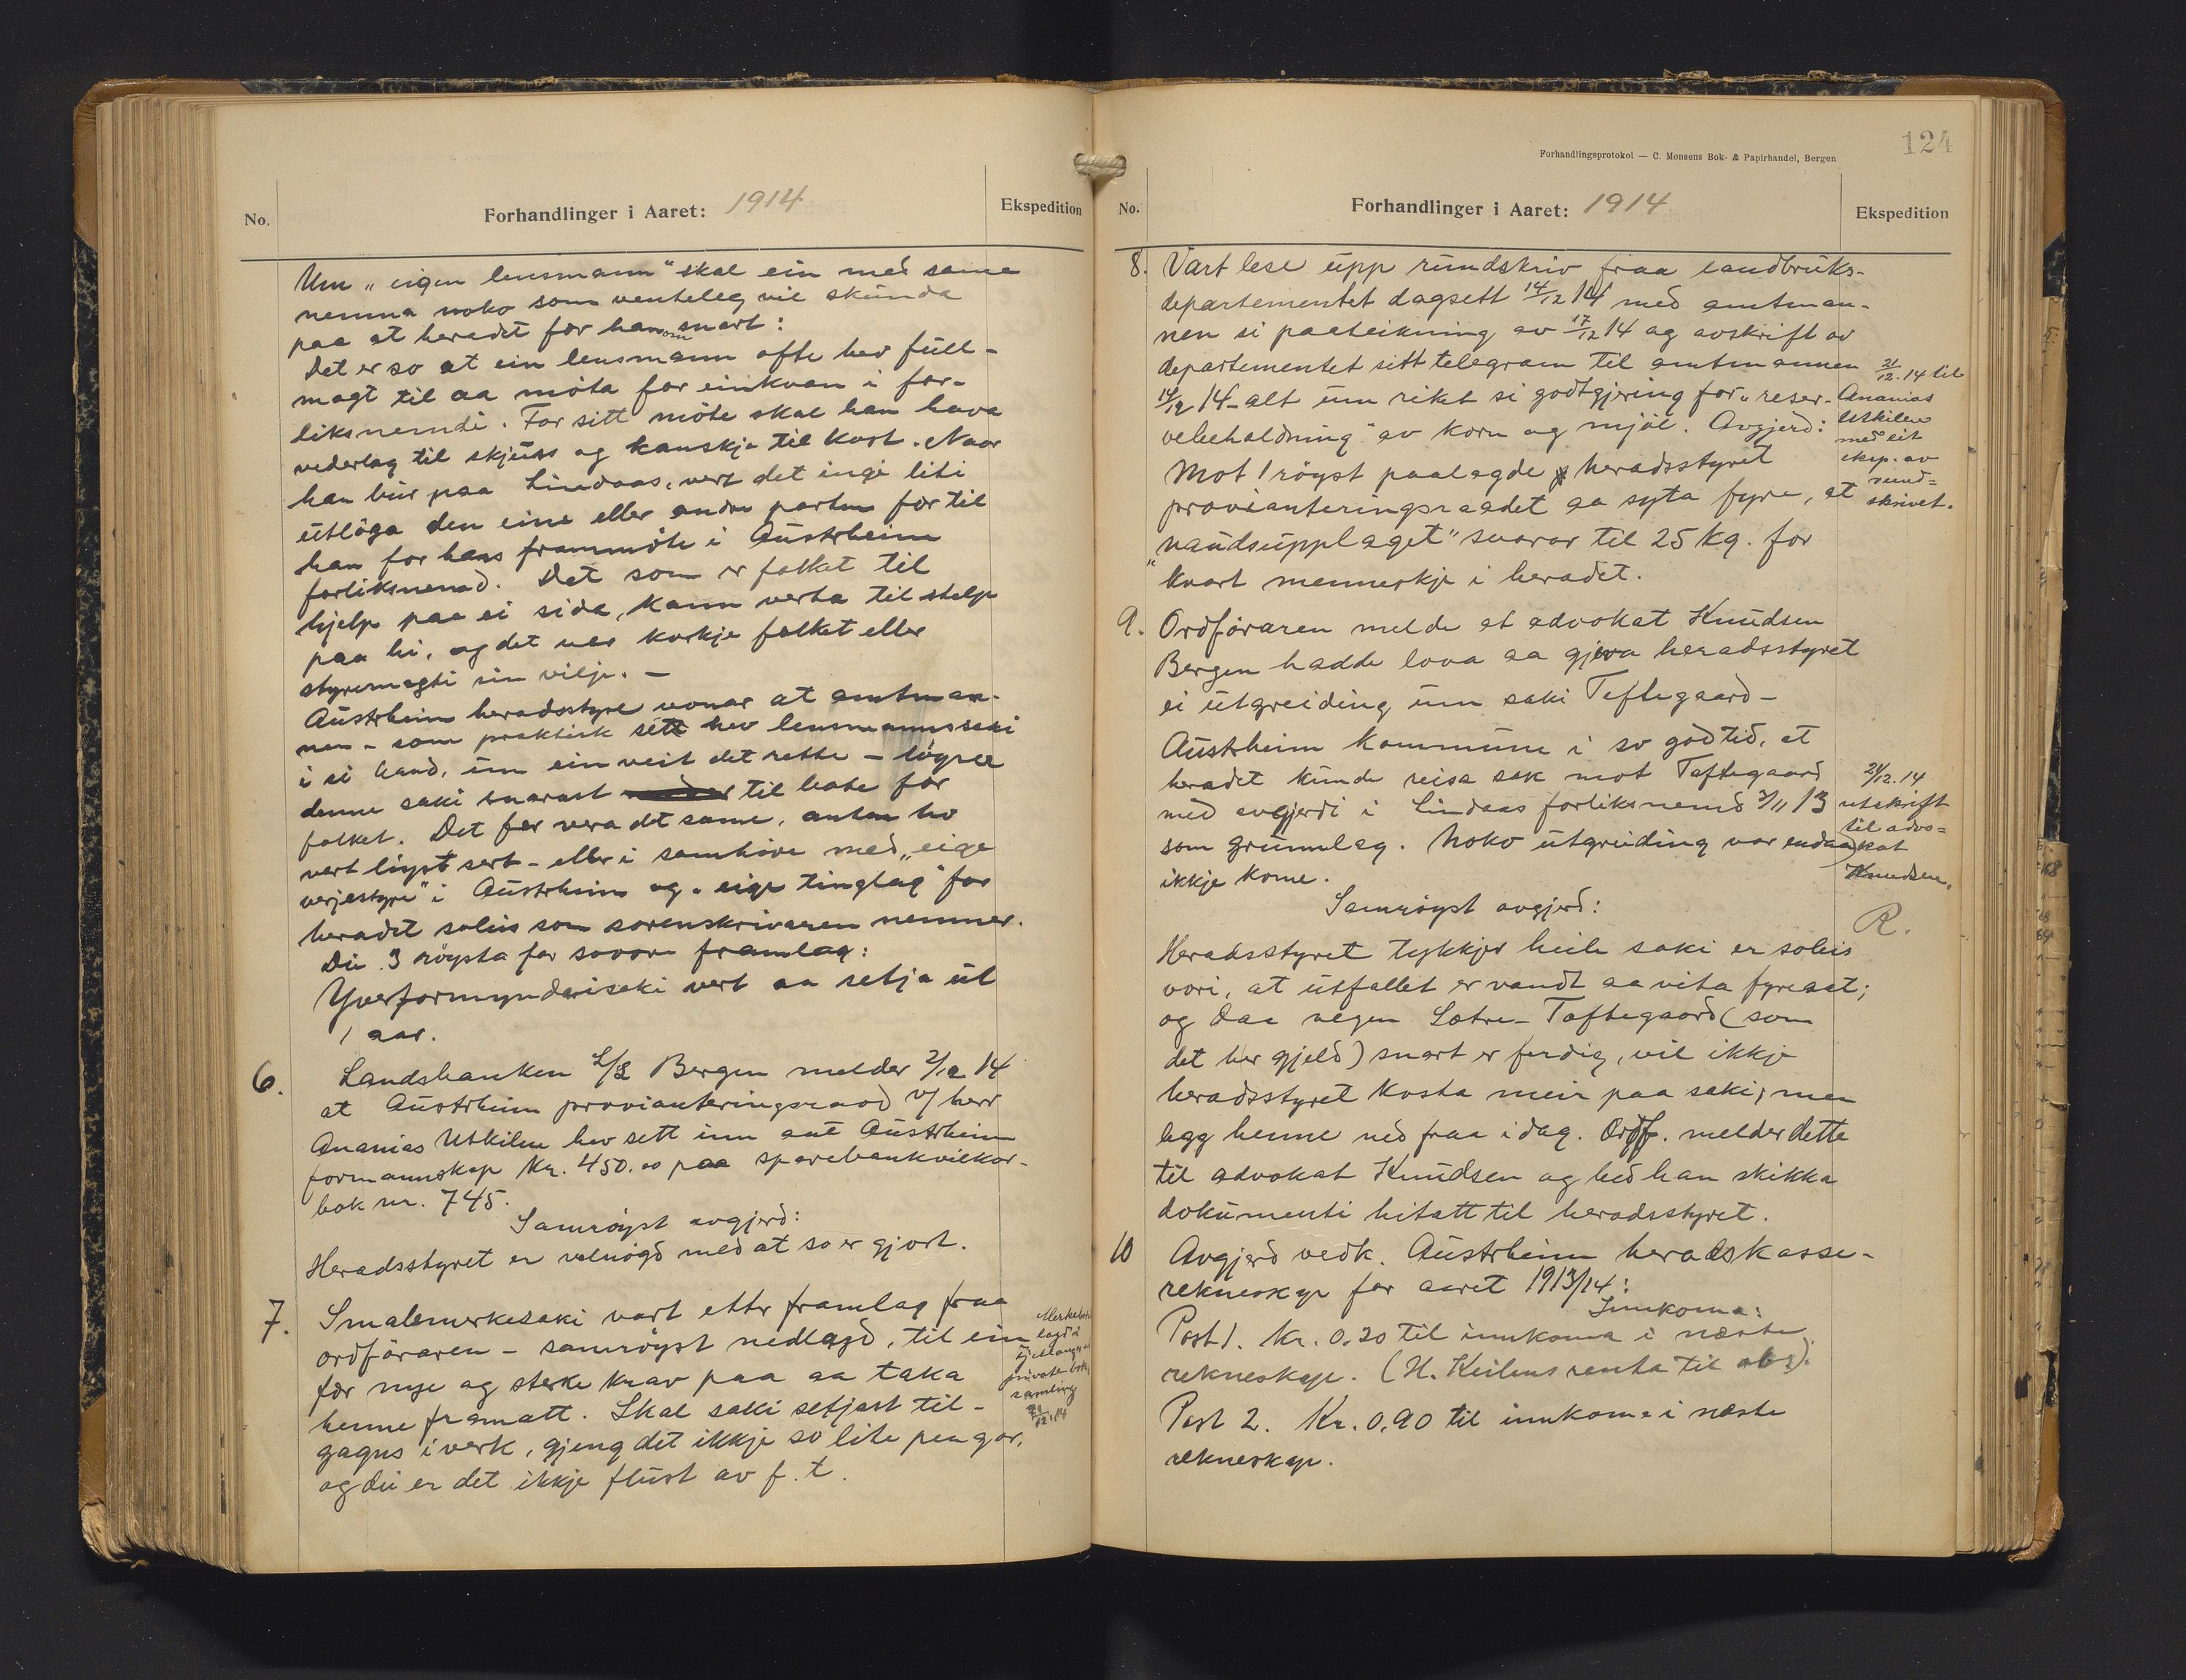 No.
Forhandlinger i Aaret: 1914
Ekspedition
Um "eigen lensmann" skal ein med same
nemna noko som venteleg vil skunda
paa at heradet fær han snart:
om
Det er so at ein lensmann ofte hev full-
magt til aa möta for einkvan i for-
liksnemdi. For sitt möte skal han hava
vederlag til skjuss og kanskje til kost. Naar
han bur paa Lindaas, vert det ingi liti
utlöga den eine eller andre parten fær til
han for hans frammöte i Austrheim
forliksnemd. Det som er folket til
hjelp paa ei sida, kann verta til stelp
paa hi, og det var korkje folket eller
styremagti sin vilje. —
Austrheim heradsstyre vonar at amtman-
nen - som praktisk sett hev lensmannssaki
i si hand, um ein veit det rette - lögner
denne saki snarast til bate for
folket. Det fær vera det same, anten ho
vert löyst sert - eller i samhöve med "eige
verjestyre" i Austrheim og "eige tinglag" for
heradet soleis som sorenskrivaren nemner.
Dei 3 röysta for sovore framlag:
Yverformynderisaki vert aa setja ut
1 aar.
6. Landsbanken L/L Bergen melder 2/12 14
at Austrheim provianteringsraad v/ herr
Ananias Utkilen hev sett inn aat Austrheim
formannskap Kr. 450.00 paa sparebankvilkor-
bok nr. 745.
Samröyst avgjerd:
Heradsstyret er velnögd med at so er gjort.
7. Smalemerkesaki vart etter framlag fraa
ordföraren - samröyst nedlagd, til ein
fær nye og sterke krav paa aa taka
henne framatt. Skal saki setjast til-
gagns i verk, gjeng det ikkje so lite pengar,
og dei er det ikkje flust av f. t.
lagd i
private bok
samling
21/12.14
Forhandlingsprotokol — C. Monsens Bok- & Papirhandel, Bergen
124
No.
Forhandlinger i Aaret: 1914
Ekspedition
8. Vart lese upp rundskriv fraa landbruks-
departementet dagsett 14/12 14 med amtman-
nen si paateikning av 17/12 14 og avskrift av
departementet sitt telegram til amtmannen
14/12 14 - alt um riket si godtgjering for "reser-
vebehaldning" av korn og mjöl. Avgjerd:
Mot 1 röyst paalagde heradsstyret
provianteringsraadet aa syta fyre, at
"naudsupplaget" svarar til 25 kg. for
kvart menneskje i heradet.
21/12.14 til
Ananias
Utkilen
med eit
eksp. av
rund=
skrivet.
9. Ordföraren melde at advokat Knudsen
Bergen hadde lova aa gjeva heradsstyret
ei utgreiding um saki Toftegaard -
Austrheim kommune i so god tid, at
heradet kunde reisa sak mot Toftegaard
med avgjerdi i Lindaas forliksnemd 3/11 13
som grunnlag. Noko utgreiding var endaa
ikkje kome.
21/12.14
utskrift
til advo=
kat
Knudsen.
Samröyst avgjerd:
R.
Heradsstyret tykkjer heile saki er soleis
vori, at utfallet er vandt aa vita fyreaat;
og daa vegen Sætre - Toftegaard (som
det her gjeld) snart er ferdig, vil ikkje
heradsstyret kosta meir paa saki, men
legg henne ned fraa idag. Ordf. melder dette
til advokat Knudsen og bed han skikka
dokumenti hitatt til heradsstyret.
10 Avgjerd vedk. Austrheim heradskasse-
rekneskap for aaret 1913/14:
Innkoma:
Post 1. Kr. 0,20 til innkoma i næste
rekneskap. (H. Keilens renta til obs).
Post 2. Kr. 0,90 til innkoma i næste
rekneskap.